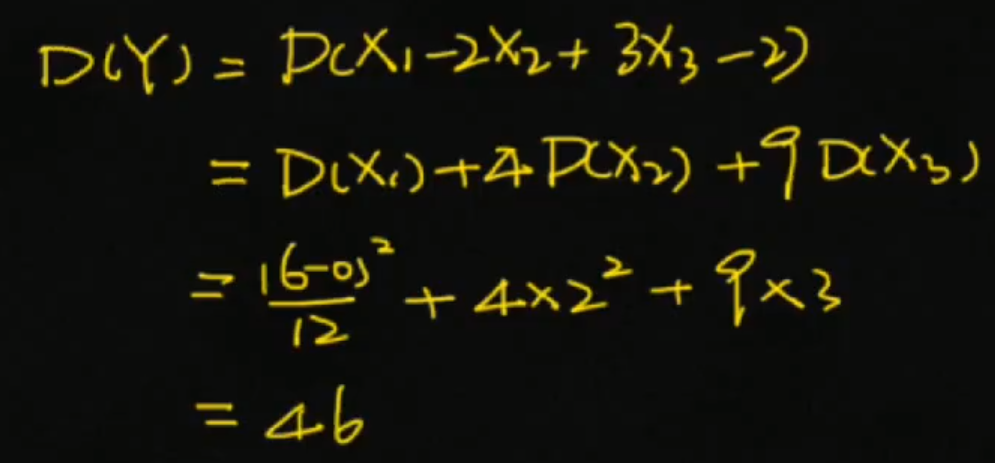 D(Y) = D(X₁-2X₂+3X₃-2)
= D(X₁)+4D(X₂)+9D(X₃)
= (6-0)²/12 + 4×2² + 9×3
= 46